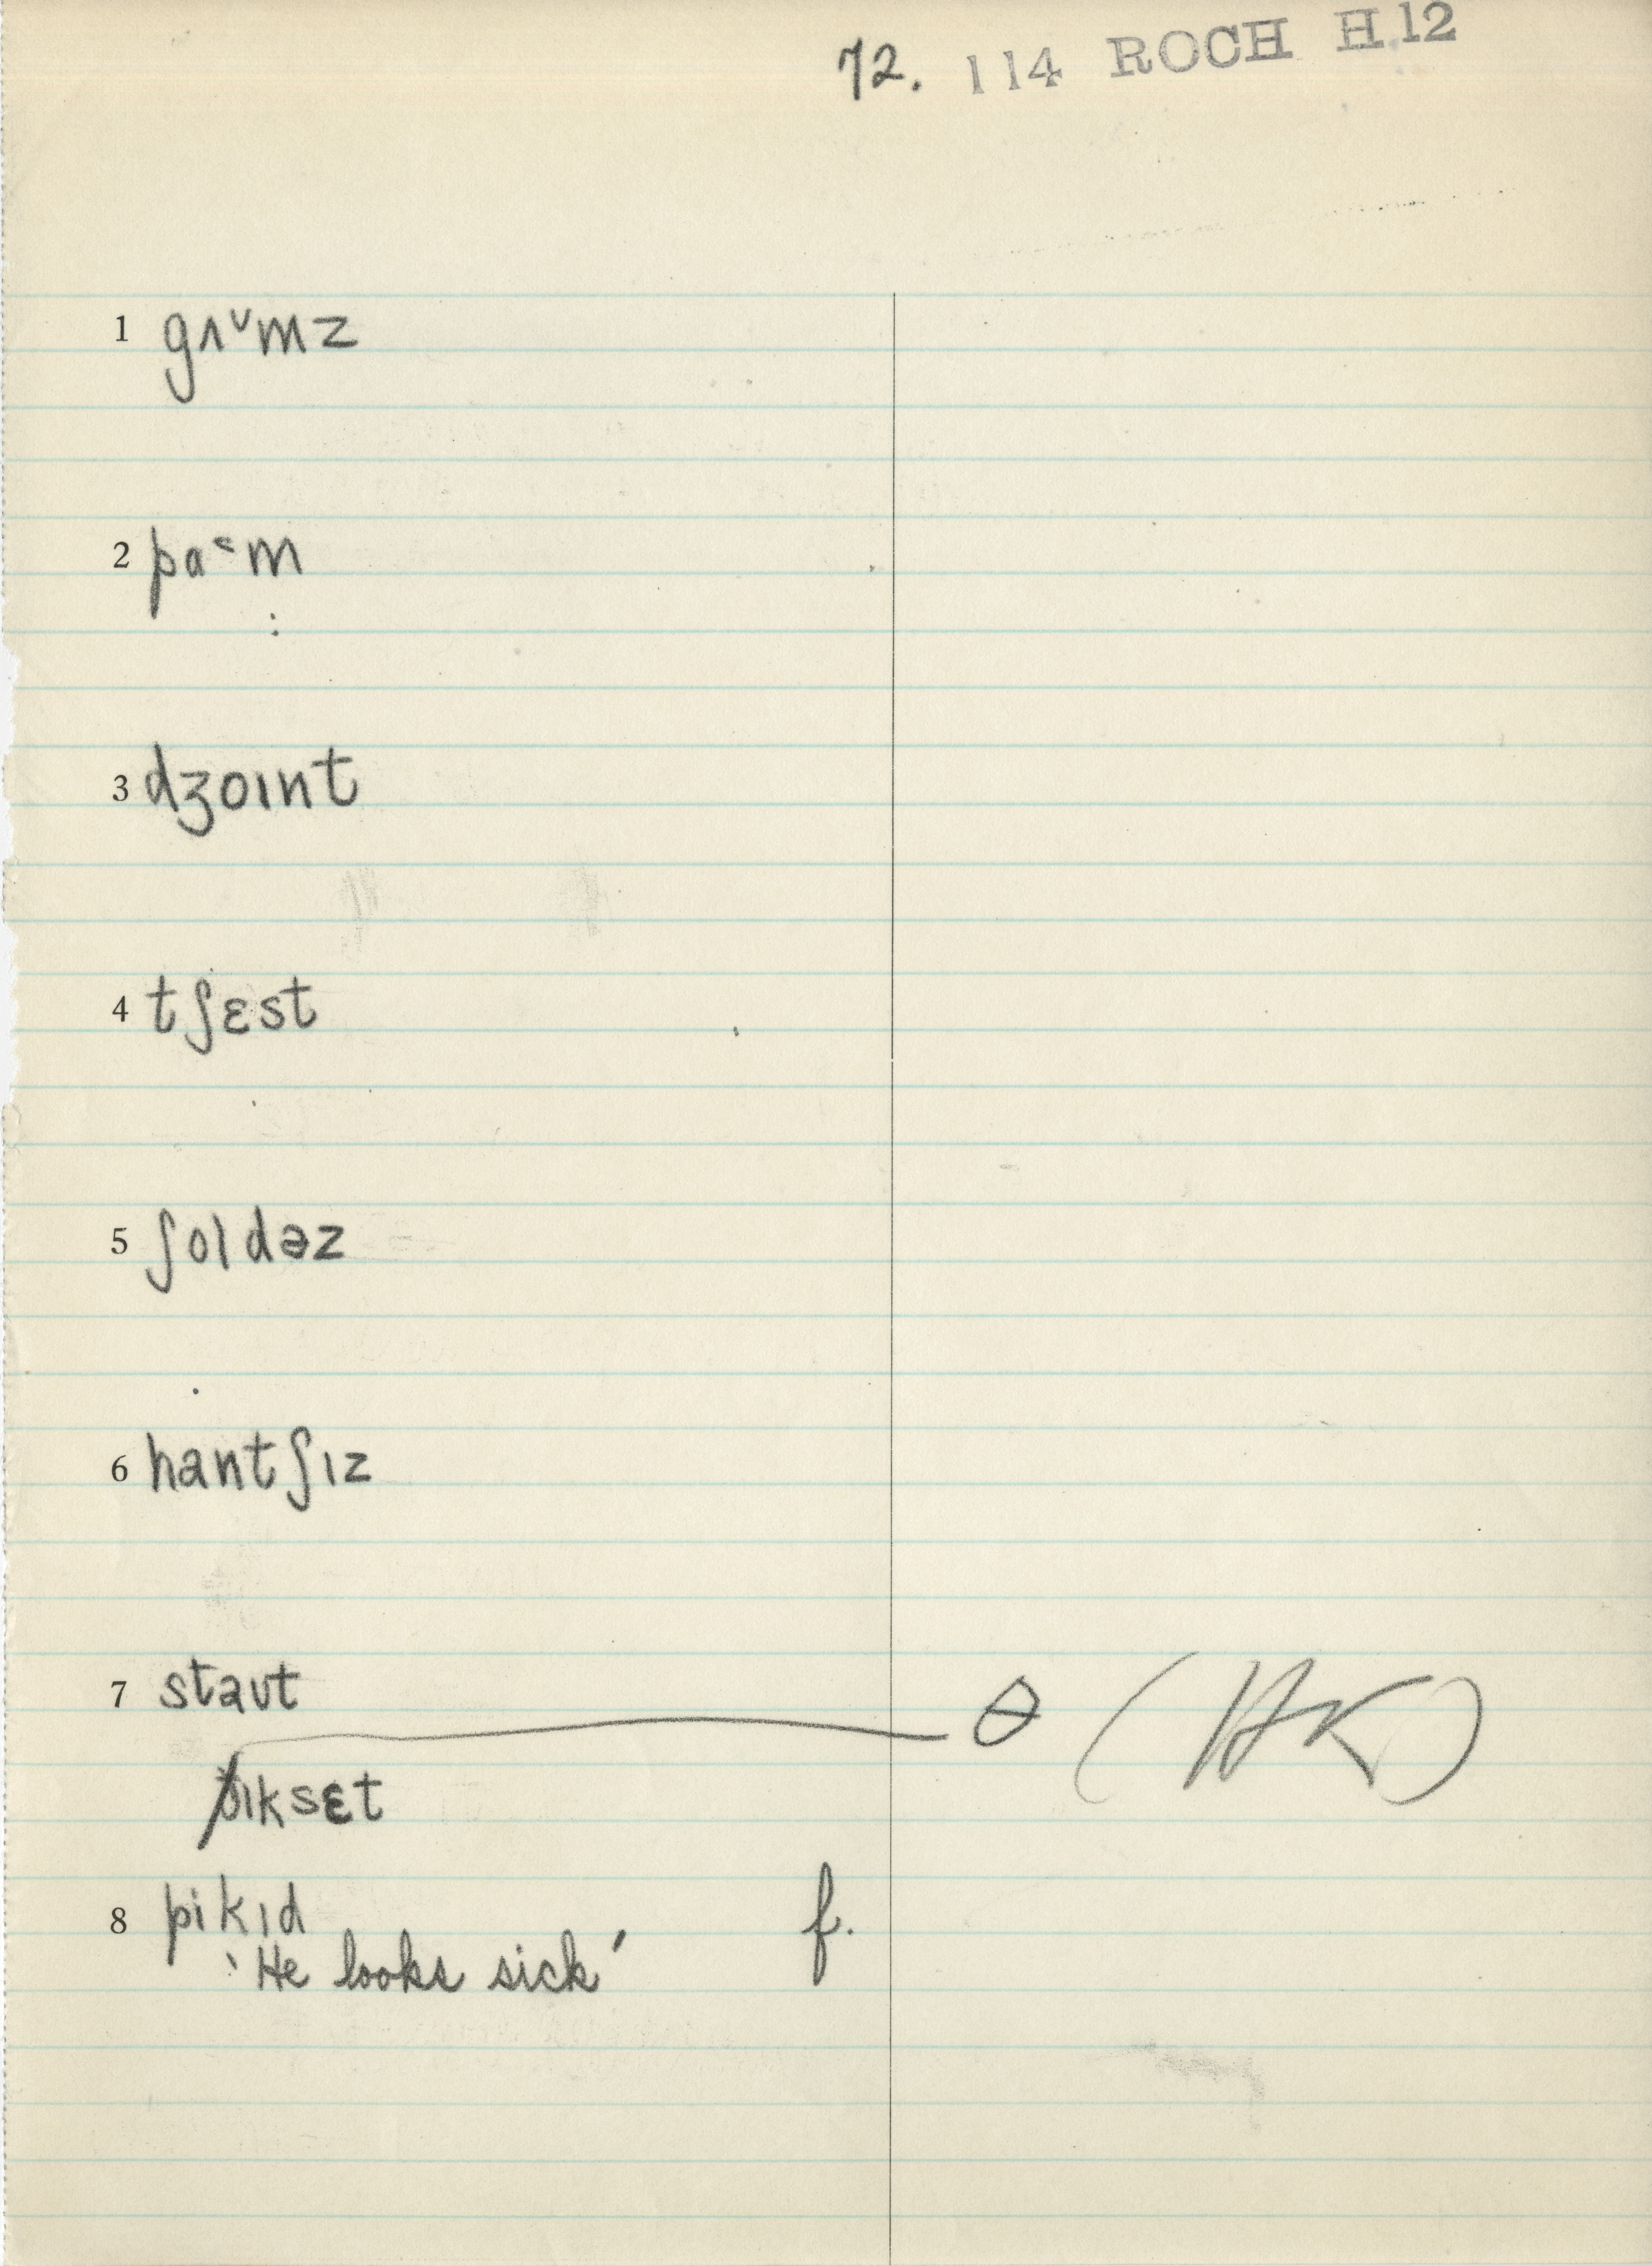 72. 114 ROCH H.12
1 gʌᵛmz
2 pa˂m
3 dʒoɪnt
4 tʃɛst
5 ʃoldəz
6 hantʃɪz
7 staʊt
θ (HK)
θɪksɛt
8 pikɪd f.
'He looks sick'